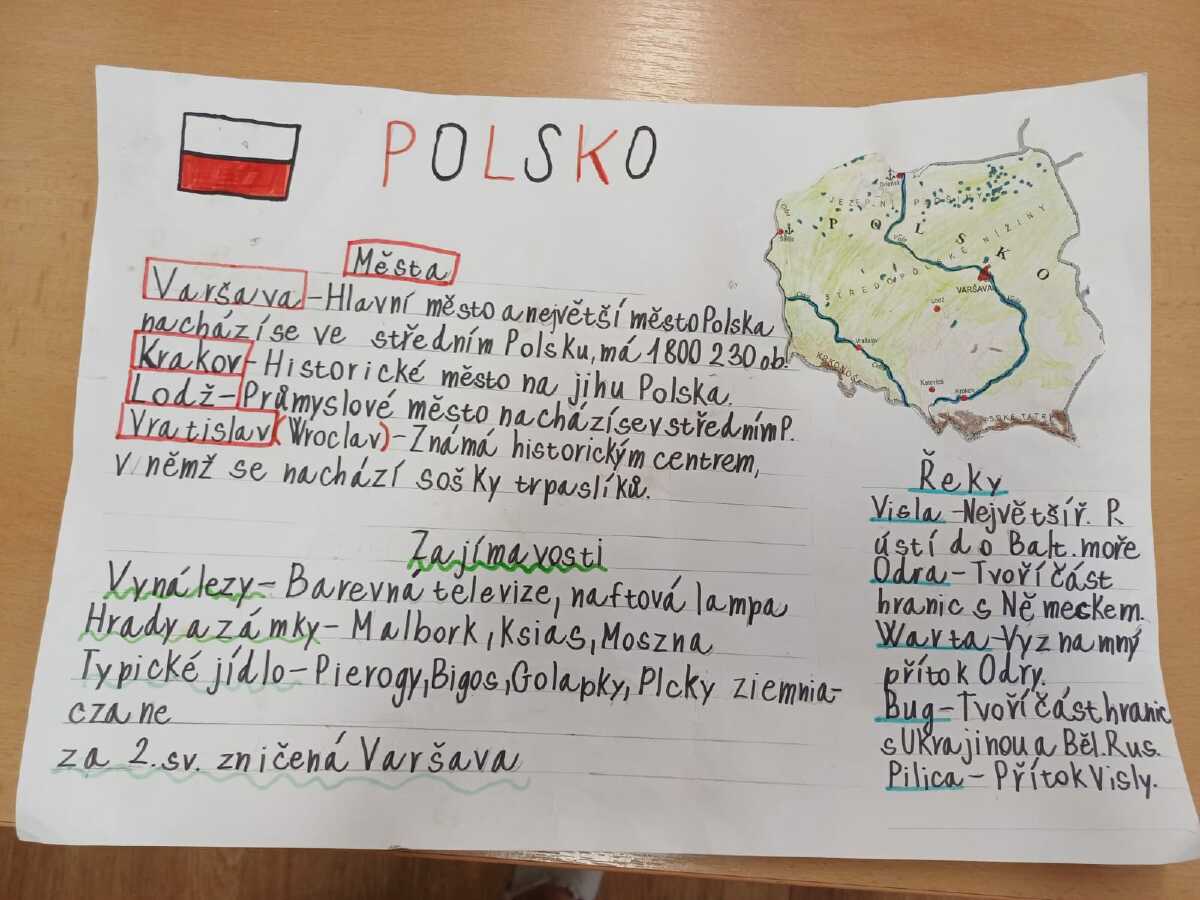 POLSKO
Města
Varšava - Hlavní město a největší město Polska
nachází se ve středním Polsku, má 1800 230 ob.
Krakov - Historické město na jihu Polska.
Lodž - Průmyslové město nachází se v středním P.
Vratislav (Wroclav) - Známá historickým centrem,
v němž se nachází sošky trpaslíků.
Zajímavosti
Vynálezy - Barevná televize, naftová lampa
Hrady a zámky - Malbork, Ksias, Moszna
Typické jídlo - Pierogy, Bigos, Golapky, Plcky ziemnia-
czane
za 2. sv. zničená Varšava
JEZERNÍ
POLSKO
Visla
STŘEDOPOLSKÉ NÍŽINY
VARŠAVA
Lodž
Vratislav
KRKONOŠE
Katovice
Krakov
Řeky
Visla - Největší ř. P.
ústí do Balt. moře
Odra - Tvoří část
hranic s Německem.
Warta - Významný
přítok Odry.
Bug - Tvoří část hranic
s Ukrajinou a Běl. Rus.
Pilica - Přítok Visly.